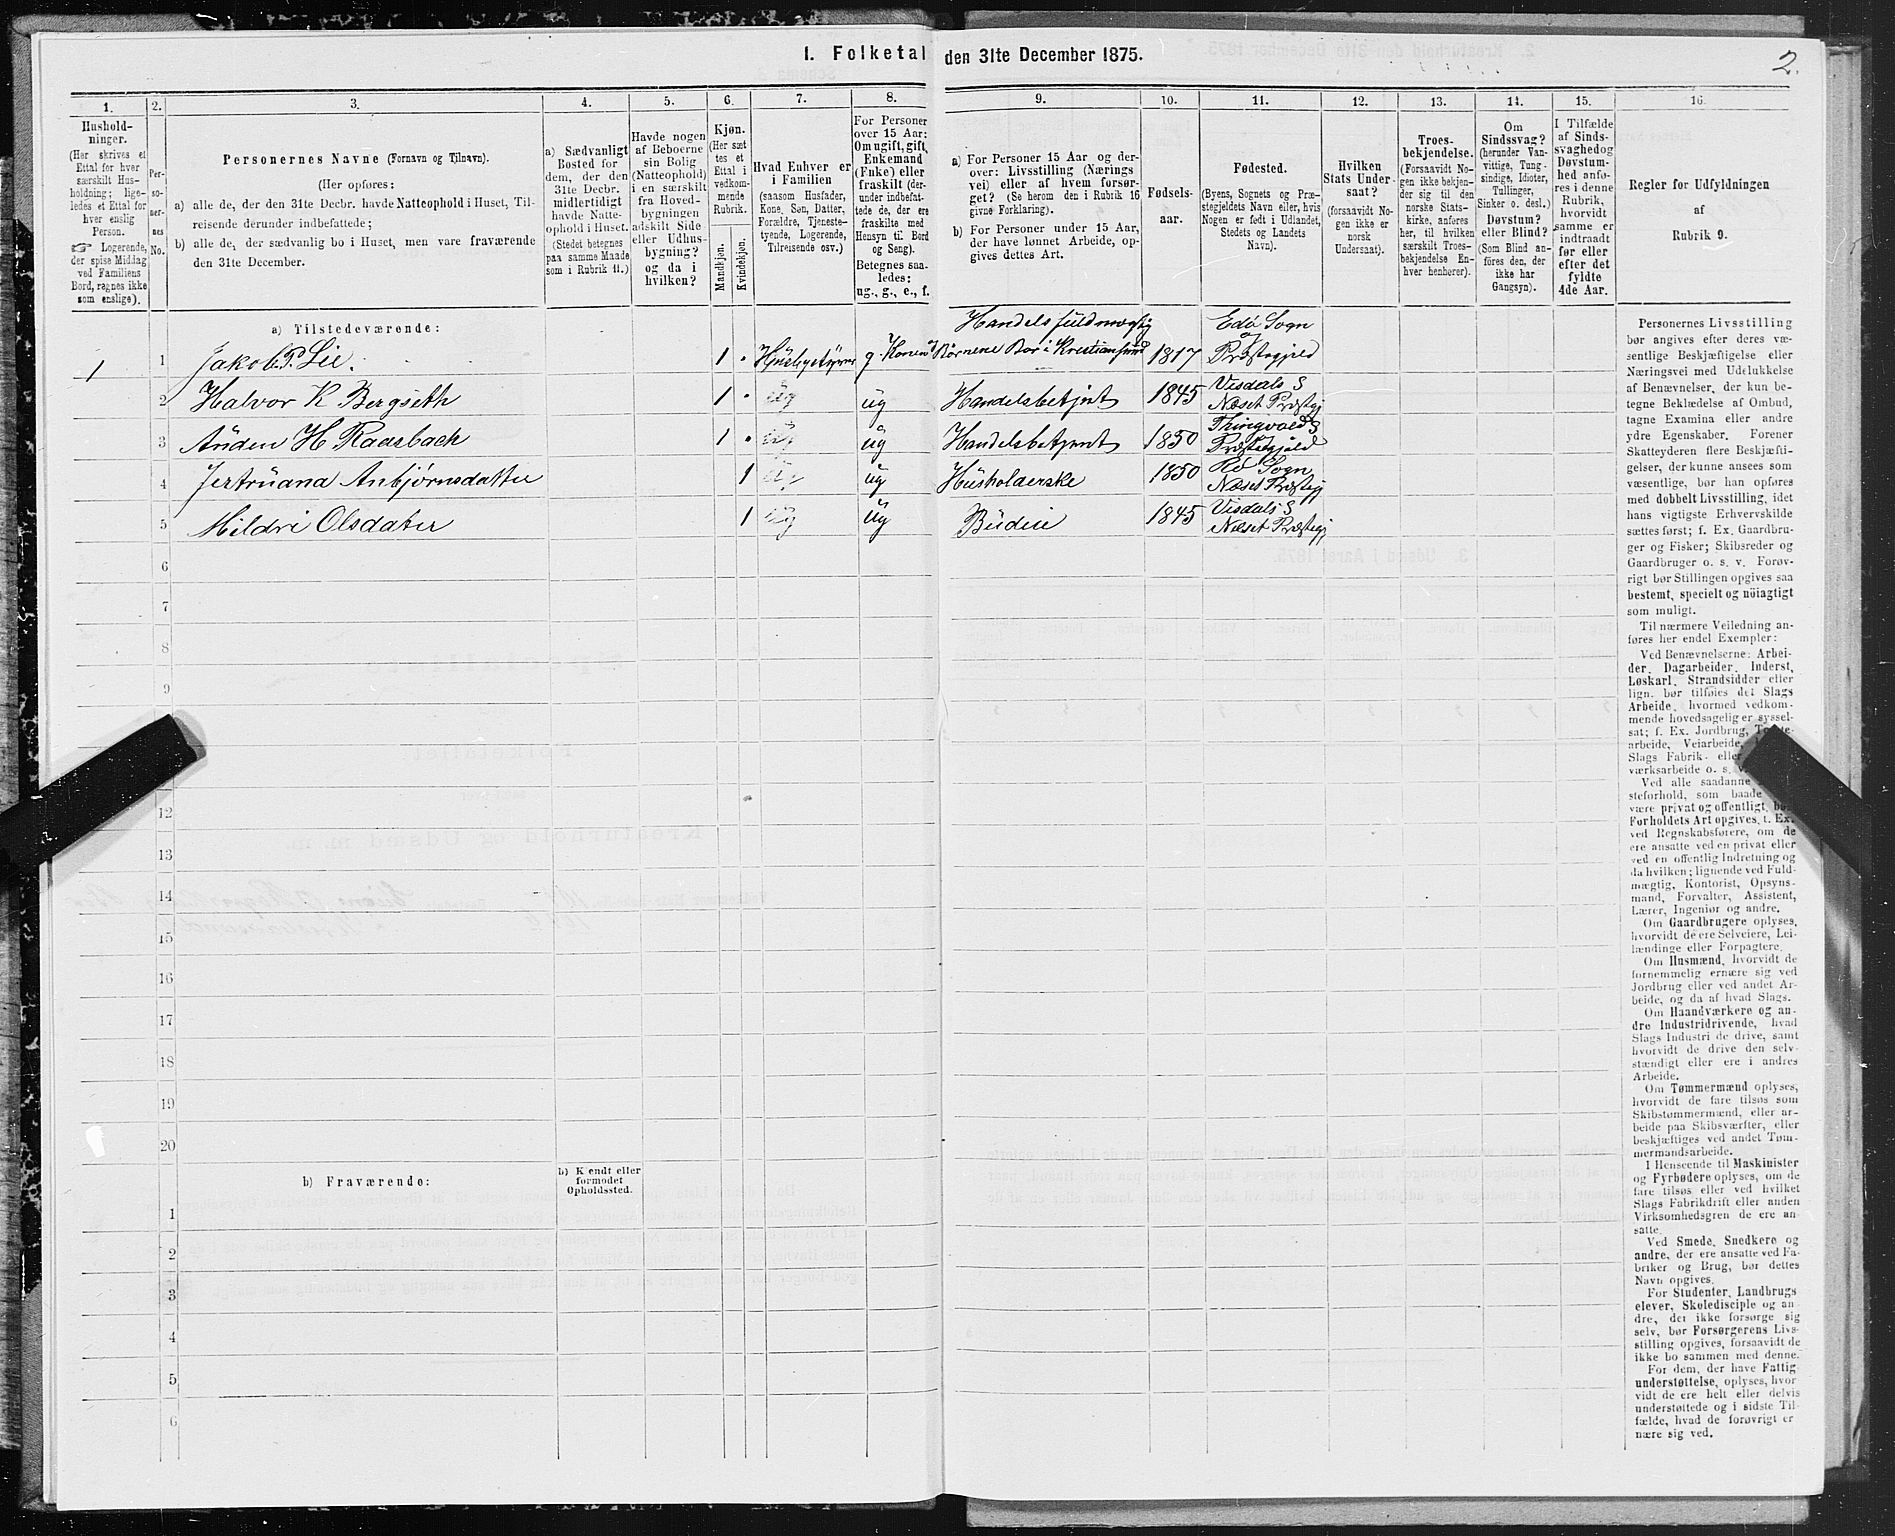 1. Folketal den 31te December 1875.
2.
1.
2.
3.
4.
5.
6.
7.
8.
9.
10.
11.
12.
13.
14.
15.
16.
Hushold-
ninger.
(Her skrives et
Ettal for hver
særskilt Hus-
holdning; lige-
ledes et Ettal for
hver enslig
Person.
☞ Logerende,
der spise Middag
ved Familiens
Bord, regnes ikke
som enslige).
Per-
so-
ner-
nes
No.
Personernes Navne (Fornavn og Tilnavn).
(Her opføres:
a) alle de, der den 31te Decbr. havde Natteophold i Huset, Til-
reisende derunder indbefattede;
b) alle de, der sædvanlig bo i Huset, men vare fraværende
den 31te December.
a) Sædvanligt
Bosted for
dem, der den
31te Decbr.
midlertidigt
havde Natte-
ophold i Huset.
(Stedet betegnes
paa samme Maade
som i Rubrik 11.)
Havde nogen
af Beboerne
sin Bolig
(Natteophold)
i en særskilt
fra Hoved-
bygningen
adskilt Side-
eller Udhus-
bygning?
og da i
hvilken?
Kjøn.
(Her sæt
tes et
Ettal i
vedkom-
mende
Rubrik.
Mandkjøn.
Kvindekjøn.
Hvad Enhver er
i Familien
(saasom Husfader,
Kone, Søn, Datter,
Forældre, Tjeneste-
tyende, Logerende,
Tilreisende osv.)
For Personer
over 15 Aar:
Om ugift, gift,
Enkemand
(Enke) eller
fraskilt (der-
under indbefat-
tede de, der ere
fraskilte med
Hensyn til Bord
og Seng).
Betegnes saa-
ledes:
ug., g., e., f.
a) For Personer 15 Aar og der-
over: Livsstilling (Nærings
vei) eller af hvem forsør-
get? (Se herom den i Rubrik 16
givne Forklaring).
b) For Personer under 15 Aar,
der have lønnet Arbeide, op-
gives dettes Art.
Fødsels-
aar.
Fødested.
(Byens, Sognets og Præ-
stegjeldets Navn eller, hvis
Nogen er født i Udlandet,
Stedets og Landets
Navn).
Hvilken
Stats Under-
saat?
(forsaavidt No-
gen ikke er
norsk
Undersaat).
Troes-
bekjendelse.
(Forsaavidt No-
gen ikke bekjen-
der sig til den
norske Stats-
kirke, anføres
her, til hvilken
særskilt Troes-
bekjendelse En-
hver henhører).
Om
Sindssvag?
(herunder Van-
vittige, Tung-
sindige, Idioter,
Tullinger,
Sinker o. desl.)
Døvstum?
eller Blind?
(Som Blind an-
føres den, der
ikke har
Gangsyn).
I Tilfælde
af Sinds-
svaghed og
Døvstum-
hed anfø-
res i denne
Rubrik,
hvorvidt
samme er
indtraadt
før eller
efter det
fyldte
4de Aar.
Regler for Udfyldningen
af
Rubrik 9.
a) Tilstedeværende:
Handelsfuldmægtig Edø Sogn
1 1 Jakob P. Lie. 1 Husbestyrer g. Konen & Børnene Bor i Kristiansund 1817 Præstegjeld
2 Halvor K Bergseth 1 ug ug Handelsbetjent 1845 Visdals S
Næset Præstegj
3 Auden H. Raasbach 1 ug ug Handelsbetjent 1850 Thingvold S
Præstegjeld
4 Jertruana Anbjørnsdatter 1 ug ug Husholderske 1850 Rø Sogn
Næset Præstegj
5 Mildri Olsdater 1 ug ug Budeie 1845 Visdals S
Næset Præstegj
6
7
8
9
12
13
14
15
16
17
18
19
20
b) Fraværende:
b) Kjendt eller
formodet
Opholdssted.
1
2
3
4
5
6
Personernes Livsstilling
bør angives efter deres væ-
sentlige Beskjæftigelse eller
Næringsvei med Udelukkelse
af Benævnelser, der kun be-
tegne Beklædelse af Ombud,
tagne Examina eller andre
ydre Egenskaber. Forener
Skatteyderen flere Beskjæfti-
gelser, der kunne ansees som
væsentlige, bør han opføres
med dobbelt Livsstilling, idet
hans vigtigste Erhvervskilde
sættes først; f. Ex. Gaardbru-
ger og Fisker; Skibsreder og
Gaardbruger o. s. v. Forøv-
rigt bør Stillingen opgives saa
bestemt, specielt og nöiagtigt
som muligt.
Til nærmere Veiledning an-
føres her endel Exempler:
Ved Benævnelserne: Arbei-
der, Dagarbeider, Inderst,
Løskarl, Strandsidder eller
lign. bør tilføies det Slags
Arbeide, hvormed vedkom-
mende hovedsagelig er syssel-
sat; f. Ex. Jordbrug,
arbeide, Veiarbeide,
Slags Fabrik- eller
værksarbeide o. s. v.
Ved alle saadanne
steforhold, som baade
være privat og offentligt, bør
Forholdets Art opgives, t. Ex.
ved Regnskabsførere, om de
ere ansatte ved en privat eller
ved en offentlig Indretning og
da hvilken; lignende ved Fuld-
mægtig, Kontorist, Opsyns-
mand, Forvalter, Assistent,
Lærer, Ingeniør og andre.
Om Gaardbrugere oplyses,
hvorvidt de ere Selveiere, Lei-
lændinge eller Forpagtere.
Om Husmænd, hvorvidt de
fornemmelig ernære sig ved
Jordbrug eller ved andet Ar-
beide, og da af hvad Slags.
Om Haandværkere og an-
dre Industridrivende, hvad
Slags Industri de drive, samt
hvorvidt de drive den selv-
stændigt eller ere i andres
Arbeide.
Om Tømmermænd oplyses,
hvorvidt de fare tilsøs som
Skibstømmermænd, eller ar-
beide paa Skibsværfter, eller
beskjæftiges ved andet Tøm-
mermandsarbeide.
I Henseende til Maskinister
og Fyrbødere oplyses, om de
fare tilsøs eller ved hvilket
Slags Fabrikdrift eller anden
Virksomhedsgren de ere an-
satte.
Ved Smede, Snedkere og
andre, der ere ansatte ved Fa-
briker og Brug, bør dettes
Navn opgives.
For Studenter, Landbrugs
elever, Skoledisciple og an
dre, der ikke forsørge sig
selv, bør Forsørgerens Livs-
stilling opgives, forsaavidt de
ikke bo sammen med denne.
For dem, der have Fattig
understøttelse, oplyses, hvor
vidt de ere helt eller delvis
understøttede og i sidste Til-
fælde, hvad de forøvrigt er
nære sig ved.